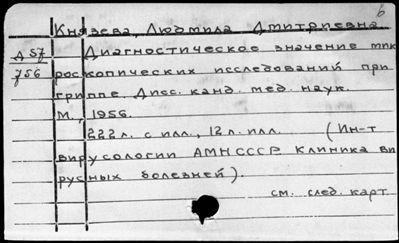 б
Князева, Людмила Дмитриевна
Д57 Диагностическое значение мик
756 роскопических исследований при
гриппе. Дисс. канд. мед. наук.
М., 1956.
222л. с илл., 12 л. илл. (Ин-т
вирусологии АМН СССР Клиника ви
русных болезней).
см. след. карт.